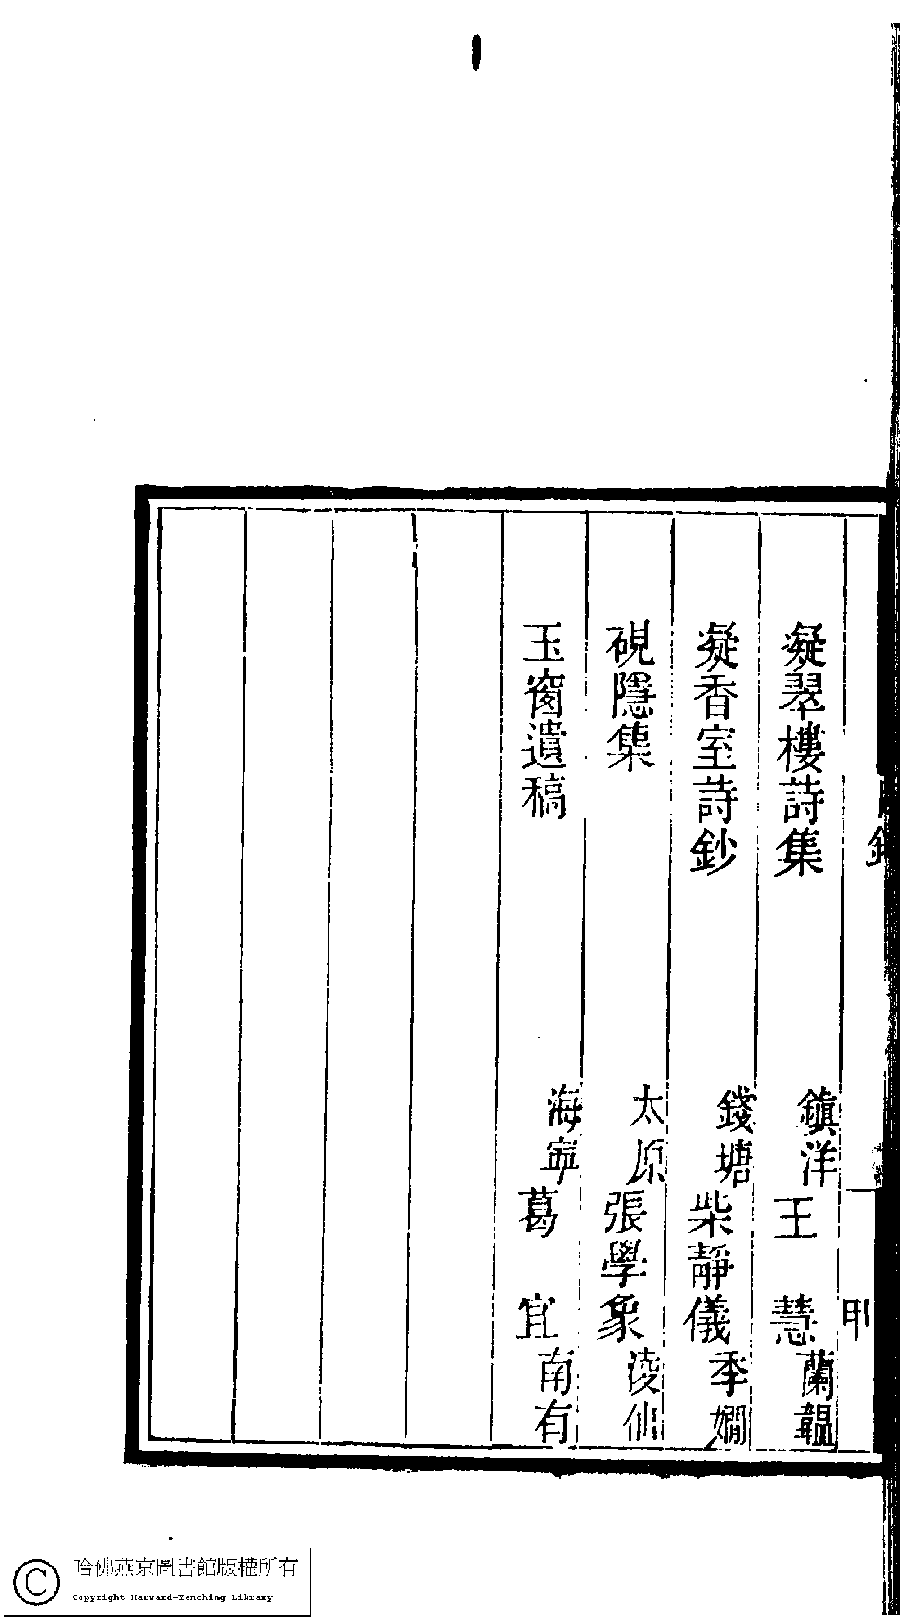 凝翠樓詩集 鎭洋 王 慧 蘭韞
凝香室詩鈔 錢塘 柴靜儀 季嫺
硯隱集 太原 張學象 淩仙
玉窗遺稿 海寧 葛 宜 南有
哈佛燕京圖書館版權所有
Copyright Harvard-Yenching Library